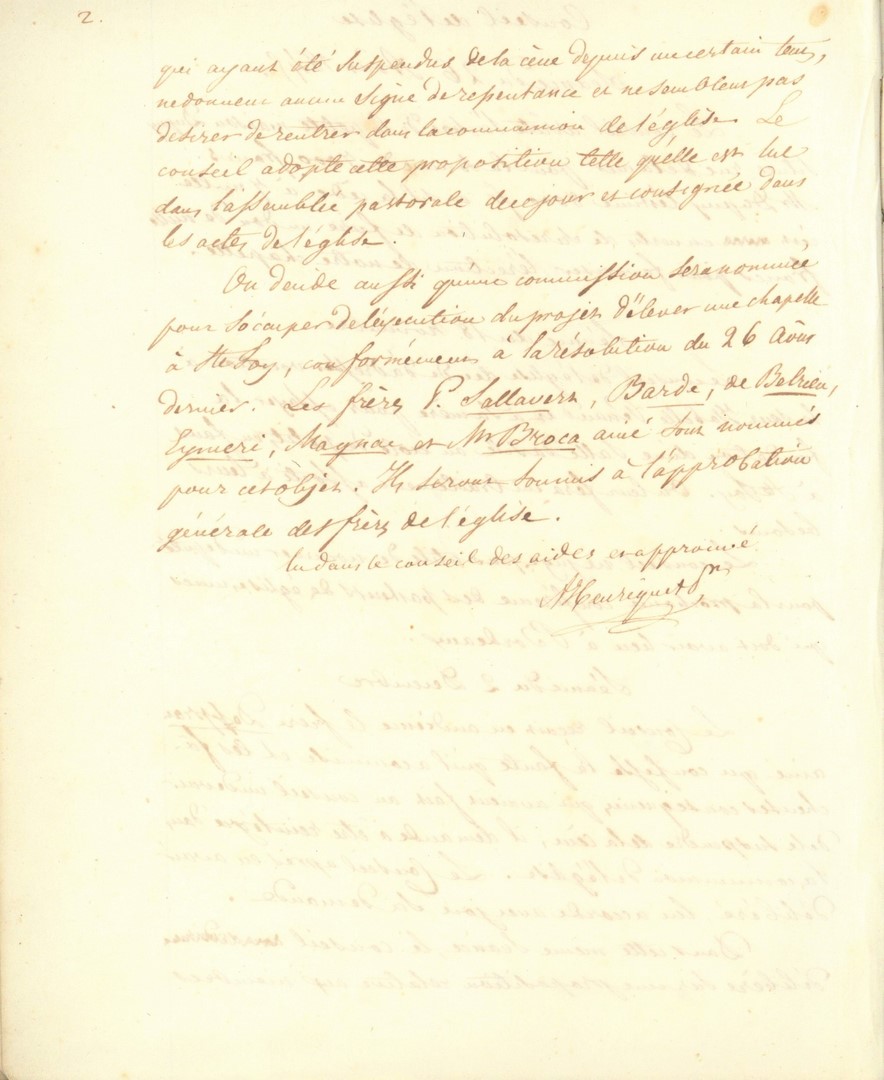 2.
qui ayant été suspendus de la cène depuis un certain tems,
ne donnent aucun signe de repentance et ne semblent pas
désirer de rentrer dans la communion de l'église. Le
conseil adopte cette proposition telle qu'elle est lue
dans l'assemblée pastorale de ce jour et consignée dans
les actes de l'église.
On décide aussi qu'une commission sera nommée
pour s'occuper de l'éxécution du projet d'élever une chapelle
à Ste Foy, conformément à la résolution du 26 Août
dernier. Les frères P. Lallavert, Barde, de Belrieu,
Eymeri, Magnac et Mr Broca ainé sont nommés
pour cet objet. Ils seront soumis à l'approbation
générale des frères de l'église.
lu dans le conseil des aides et approuvé
Henriquet pr